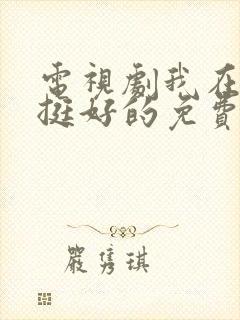 電視劇我在
挺好的免費
嚴隽琪